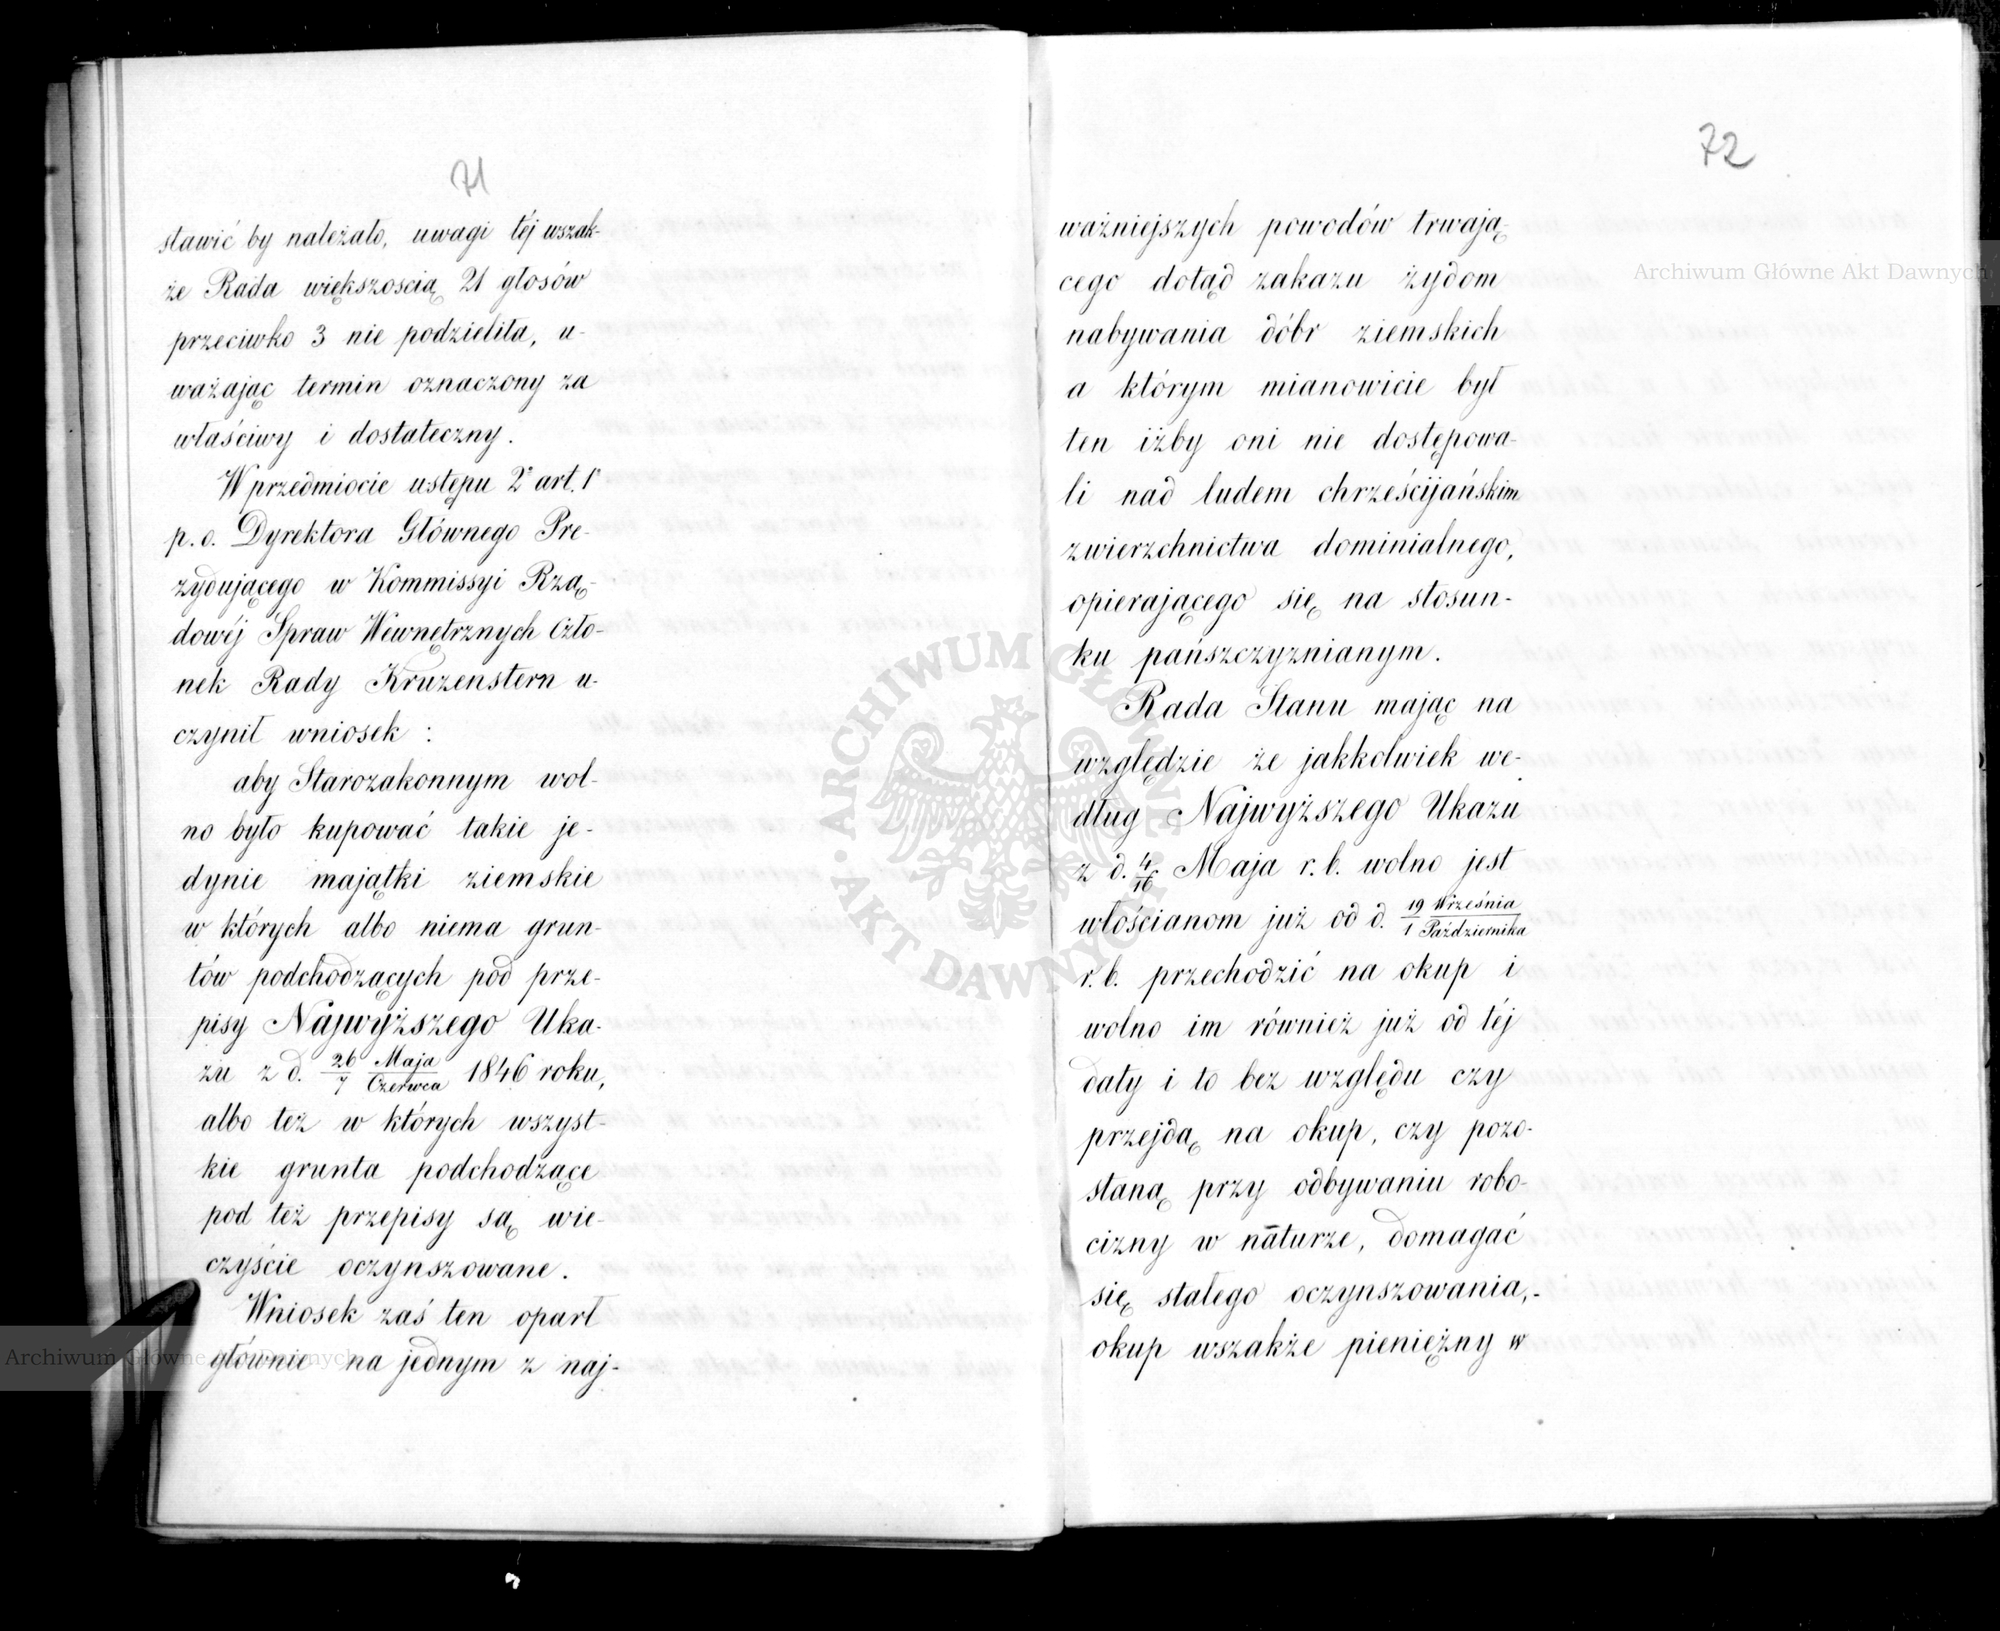 71
stawić by należało, uwagi téj wszak-
że Rada większoscią 21 głosów
przeciwko 3 nie podzieliła, u-
ważając termin oznaczony za
właściwy i dostateczny.
W przedmiocie ustępu 2º art. 1º
p. o. Dyrektora Głównego Pre-
zydującego w Kommissyi Rzą-
dowéj Spraw Wewnętrznych Czło-
nek Rady Kruzenstern u-
czynił wniosek :
aby Starozakonnym wol-
no było kupować takie je-
dynie majątki ziemskie
w których albo niema grun-
tów podchodzących pod prze-
pisy Najwyższego Uka-
zu z d. 26/7 Maja/Czerwca 1846 roku,
albo też w których wszyst-
kie grunta podchodzące
pod też przepisy są wie-
czyście oczynszowane.
Wniosek zaś ten oparł
głównie na jednym z naj-
72
ważniejszych powodów trwają-
cego dotąd zakazu żydom
nabywania dóbr ziemskich
a którym mianowicie był
ten iżby oni nie dostępowa-
li nad ludem chrześcijańskim
zwierzchnictwa dominialnego,
opierającego się na stosun-
ku pańszczyznianym.
Rada Stanu mając na
względzie że jakkolwiek we-
dług Najwyższego Ukazu
z d. 4/16 Maja r. b. wolno jest
włościanom już od d. 19/1 Września/Października
r. b. przechodzić na okup i
wolno im również już od téj
daty i to bez względu czy
przejdą na okup, czy pozo-
staną przy odbywaniu robo-
cizny w naturze, domagać
się stałego oczynszowania,-
okup wszakże pieniężny w
Archiwum Główne Akt Dawnych
Archiwum Główne Akt Dawnych
ARCHIWUM GŁÓWNE AKT DAWNYCH